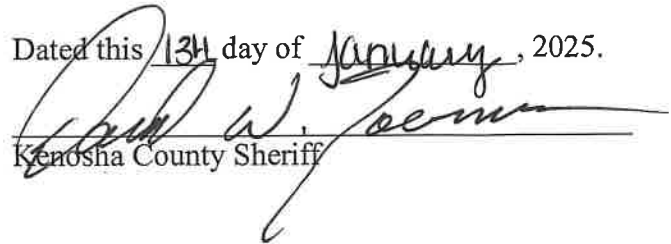 Dated this 13th day of January, 2025.
David W. Zoerner
Kenosha County Sheriff